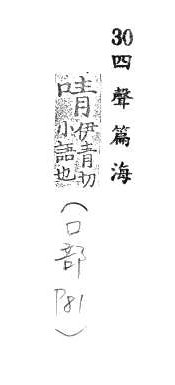 30四聲篇海
啨伊青切
小語也
(口部
P81)